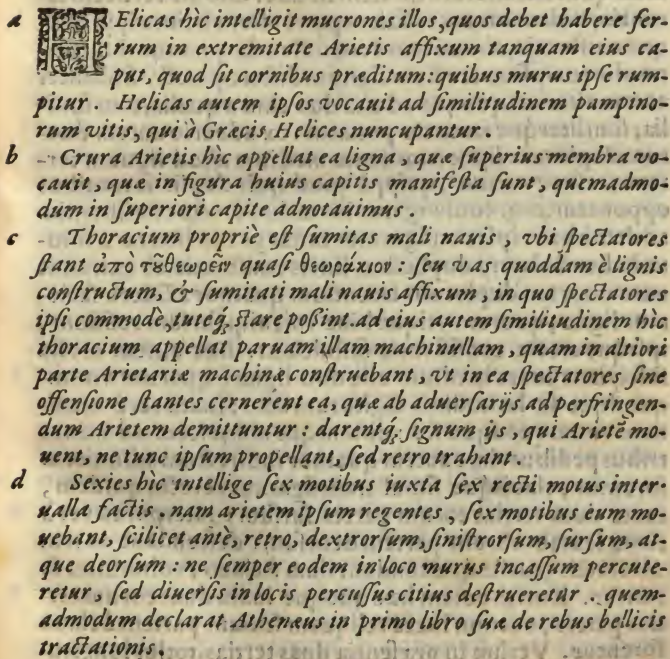 a HElicas hìc intelligit mucrones illos, quos debet habere fer-
rum in extremitate Arietis affixum tanquam eius ca-
put, quod ſit cornibus præditum: quibus murus ipſe rum-
pitur. Helicas autem ipſos vocauit ad ſimilitudinem pampino-
rum vitis, qui à Græcis Helices nuncupantur.
b Crura Arietis hìc appellat ea ligna, quæ ſuperius membra vo-
cauit, quæ in figura huius capitis manifeſta ſunt, quemadmo-
dum in ſuperiori capite adnotauimus.
c Thoracium propriè eſt ſumitas mali nauis, vbi ſpectatores
ſtant ἀπὸ τȣ͂ θεωρεῖν quaſi θεωράκιον: ſeu vas quoddam è lignis
conſtructum, & ſumitati mali nauis affixum, in quo ſpectatores
ipſi commodè, tuteq́. ſtare poßint. ad eius autem ſimilitudinem hìc
thoracium appellat paruam illam machinullam, quam in altiori
parte Arietariæ machinæ conſtruebant, vt in ea ſpectatores ſine
offenſione ſtantes cernerent ea, quæ ab aduerſarijs ad perfringen-
dum Arietem demittuntur: darentq́. ſignum ijs, qui Arietē mo-
uent, ne tunc ipſum propellant, ſed retro trahant.
d Sexies hìc intellige ſex motibus iuxta ſex recti motus inter-
ualla factis. nam arietem ipſum regentes, ſex motibus eum mo-
uebant, ſcilicet antè, retro, dextrorſum, ſiniſtrorſum, ſurſum, at-
que deorſum: ne ſemper eodem in loco murus incaſſum percute-
retur, ſed diuerſis in locis percuſſus citius deſtrueretur. quem-
admodum declarat Athenæus in primo libro ſuæ de rebus bellicis
tractationis.